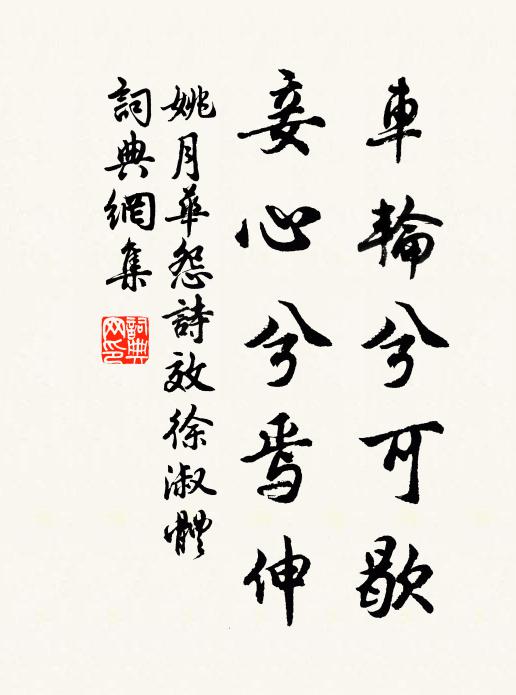 車輪兮可歇
妾心兮焉伸
姚月華怨詩效徐淑體
詞典網集
詞典網印